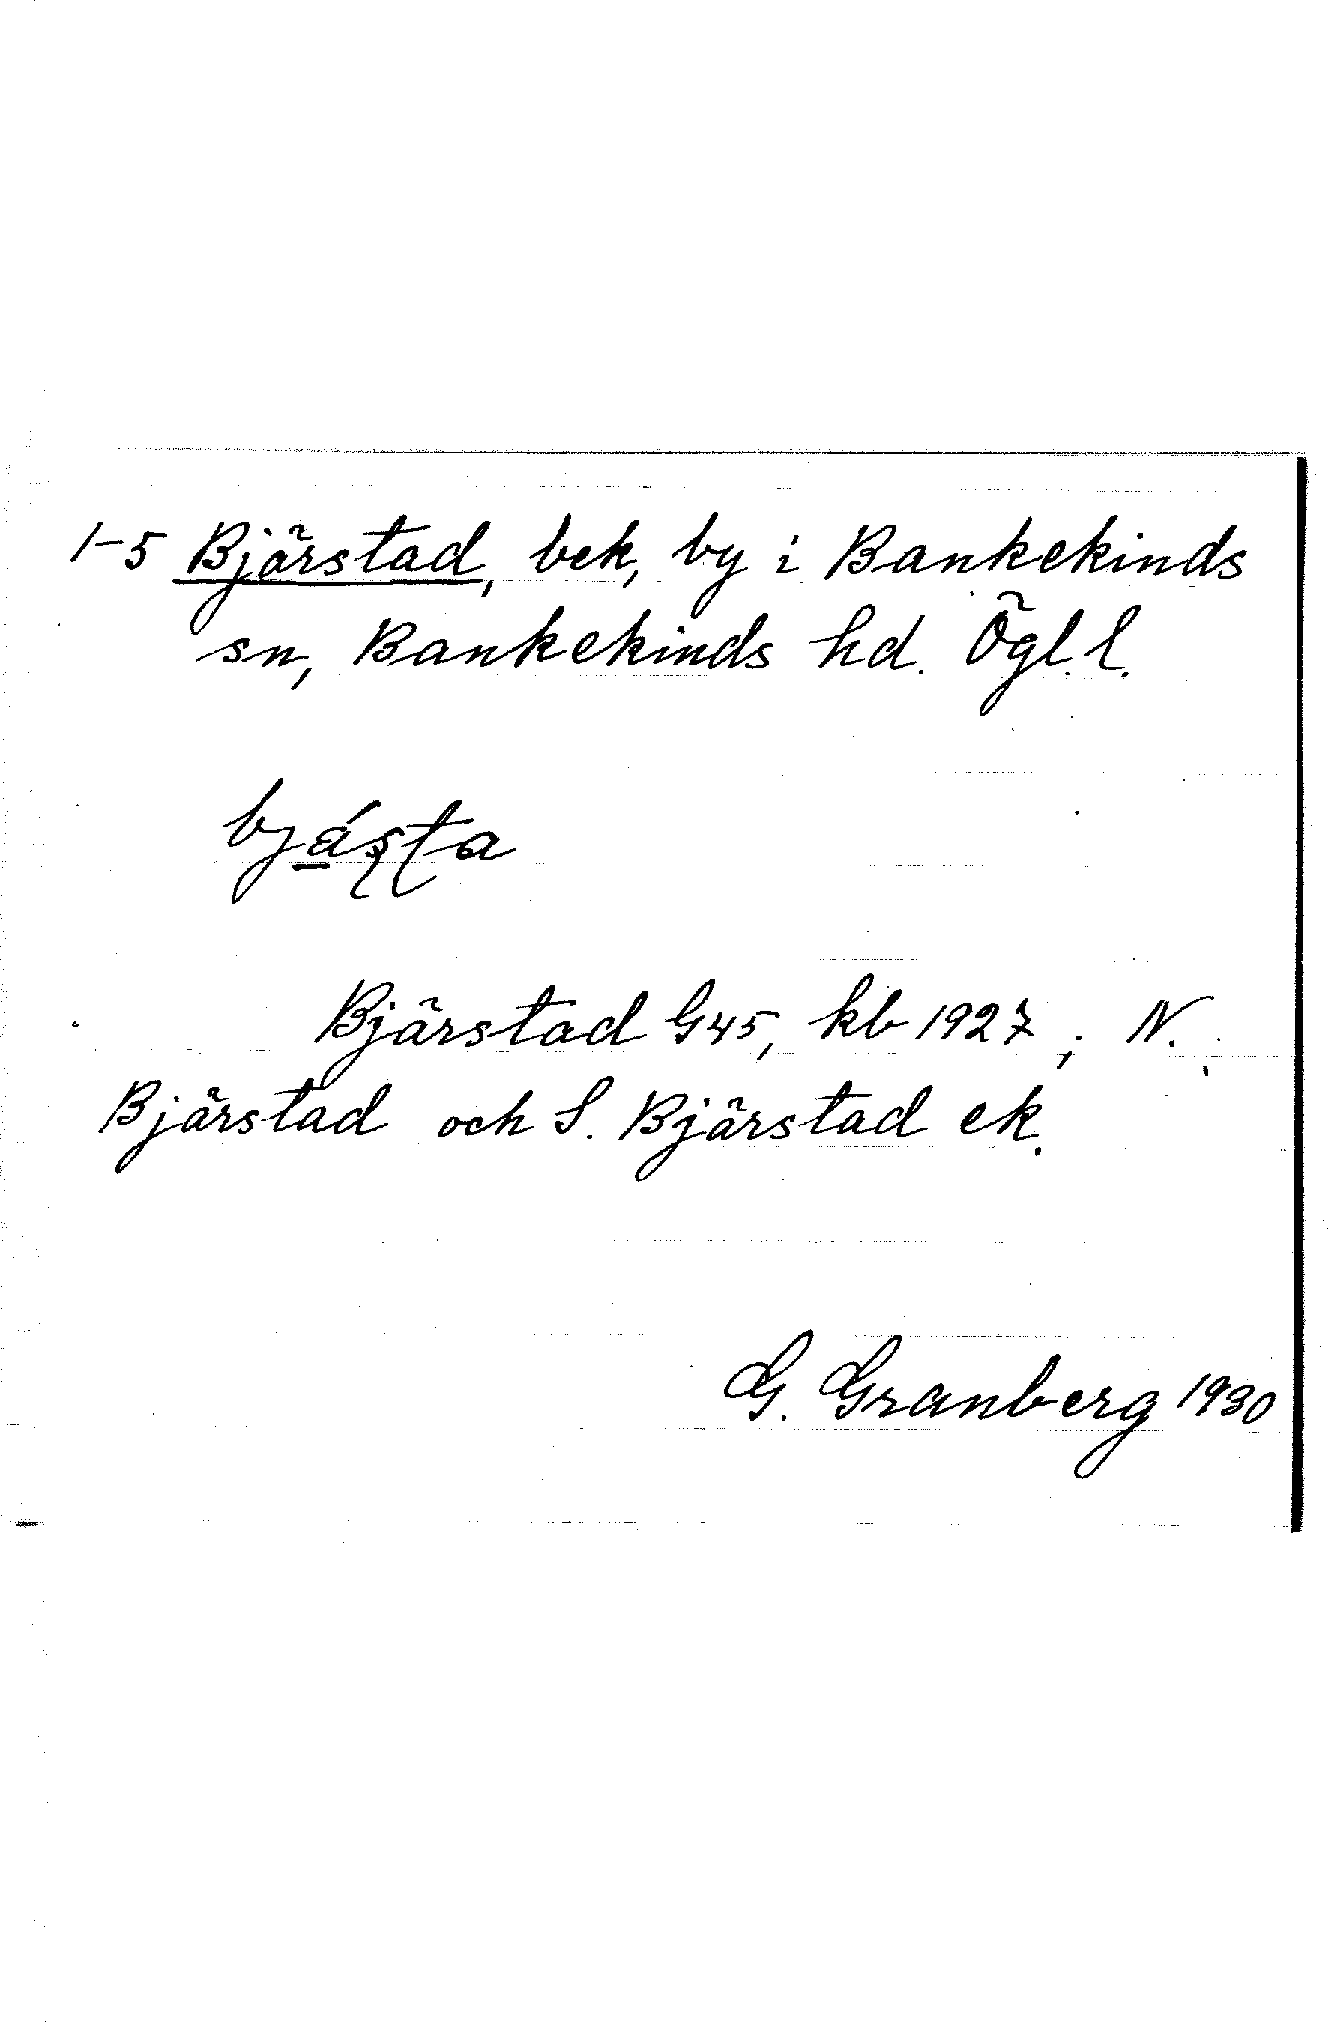 1-5 Bjärstad, bek, by i Bankekinds
sn, Bankekinds hd. Ögl. l.
Bjärstad G45, kb 1927; N.
Bjärstad och S. Bjärstad ek.
G. Granberg 1930